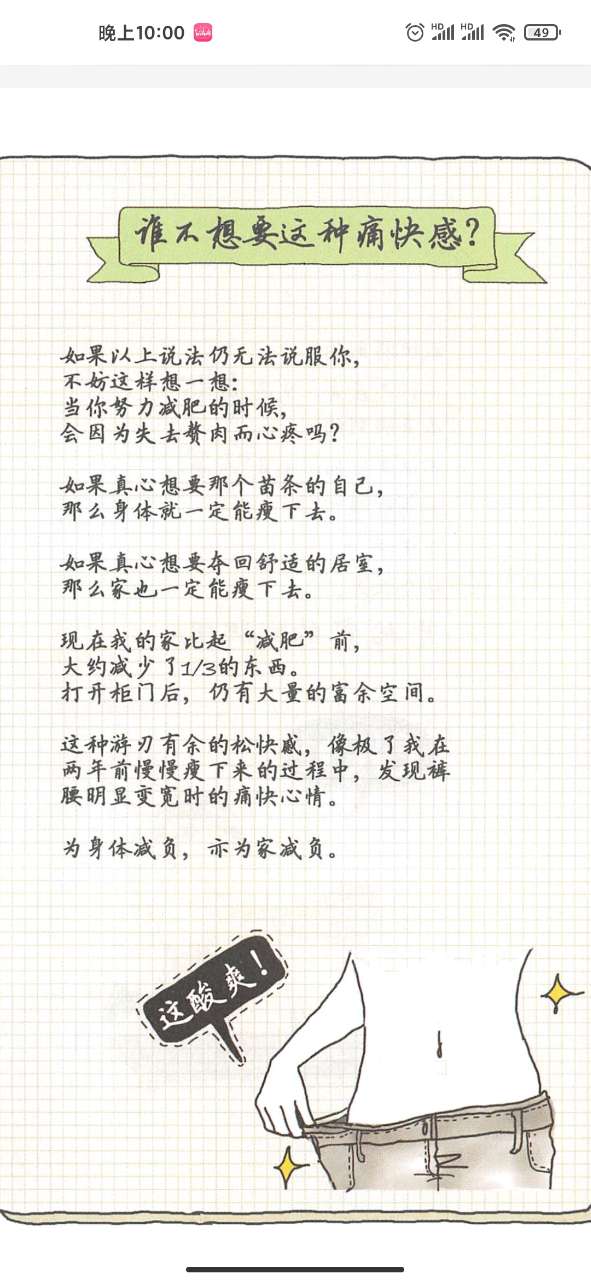 晚上10:00
HD
HD
49
谁不想要这种痛快感?
如果以上说法仍无法说服你,
不妨这样想一想:
当你努力减肥的时候,
会因为失去赘肉而心疼吗?
如果真心想要那个苗条的自己,
那么身体就一定能瘦下去。
如果真心想要夺回舒适的居室,
那么家也一定能瘦下去。
现在我的家比起“减肥”前,
大约减少了1/3的东西。
打开柜门后,仍有大量的富余空间。
这种游刃有余的松快感,像极了我在
两年前慢慢瘦下来的过程中,发现裤
腰明显变宽时的痛快心情。
为身体减负,亦为家减负。
这酸爽!